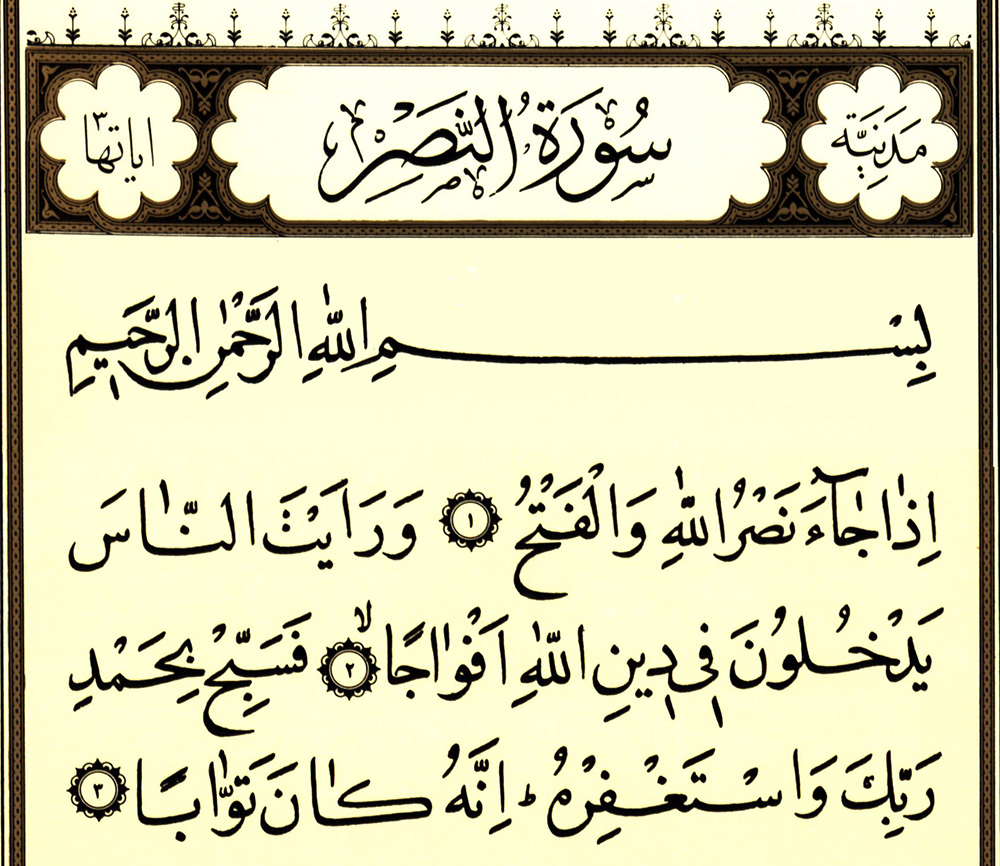 مَدَنِيَّة سُورَةُ النَّصْرِ اياتها ٣
بِسْمِ اللّٰهِ الرَّحْمٰنِ الرَّحٖيمِ
اِذَا جَٓاءَ نَصْرُ اللّٰهِ وَالْفَتْحُ ١ وَرَاَيْتَ النَّاسَ
يَدْخُلُونَ فٖي دٖينِ اللّٰهِ اَفْوَاجًا ۙ ٢ فَسَبِّحْ بِحَمْدِ
رَبِّكَ وَاسْتَغْفِرْهُ ؕ اِنَّهُ كَانَ تَوَّابًا ٣